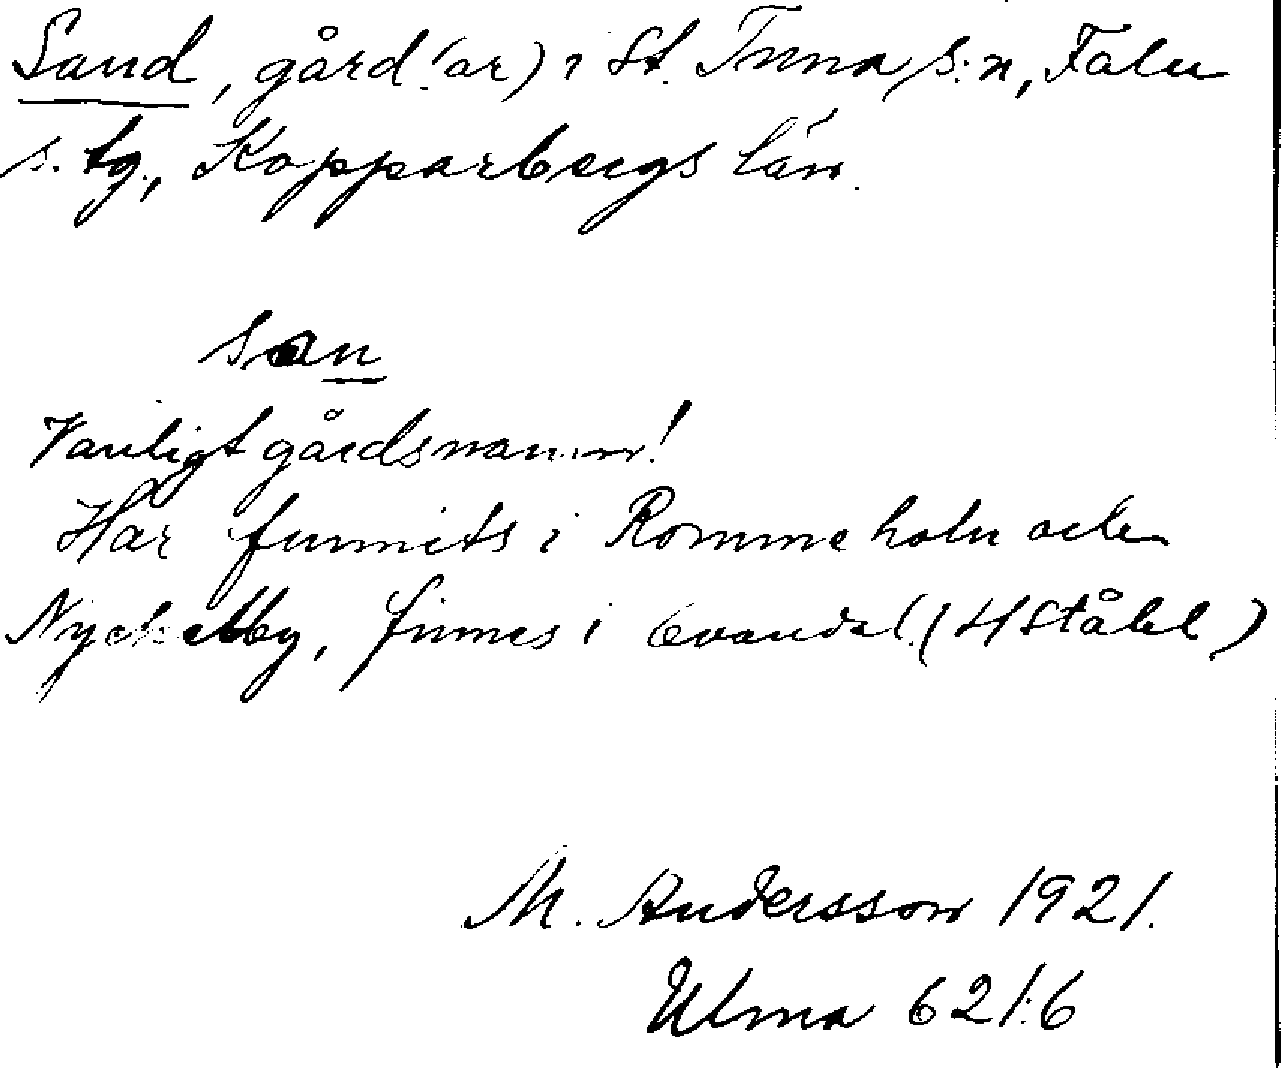 Sand, gård(ar) i St. Tuna s:n, Falu
s. tg., Kopparbergs län.
san
Vanligt gårdsnamn!
Har funnits i Romme holn och
Nyckelby, finnes i (H Ståhl)
M. Andersson 1921.
Ulma 621:6